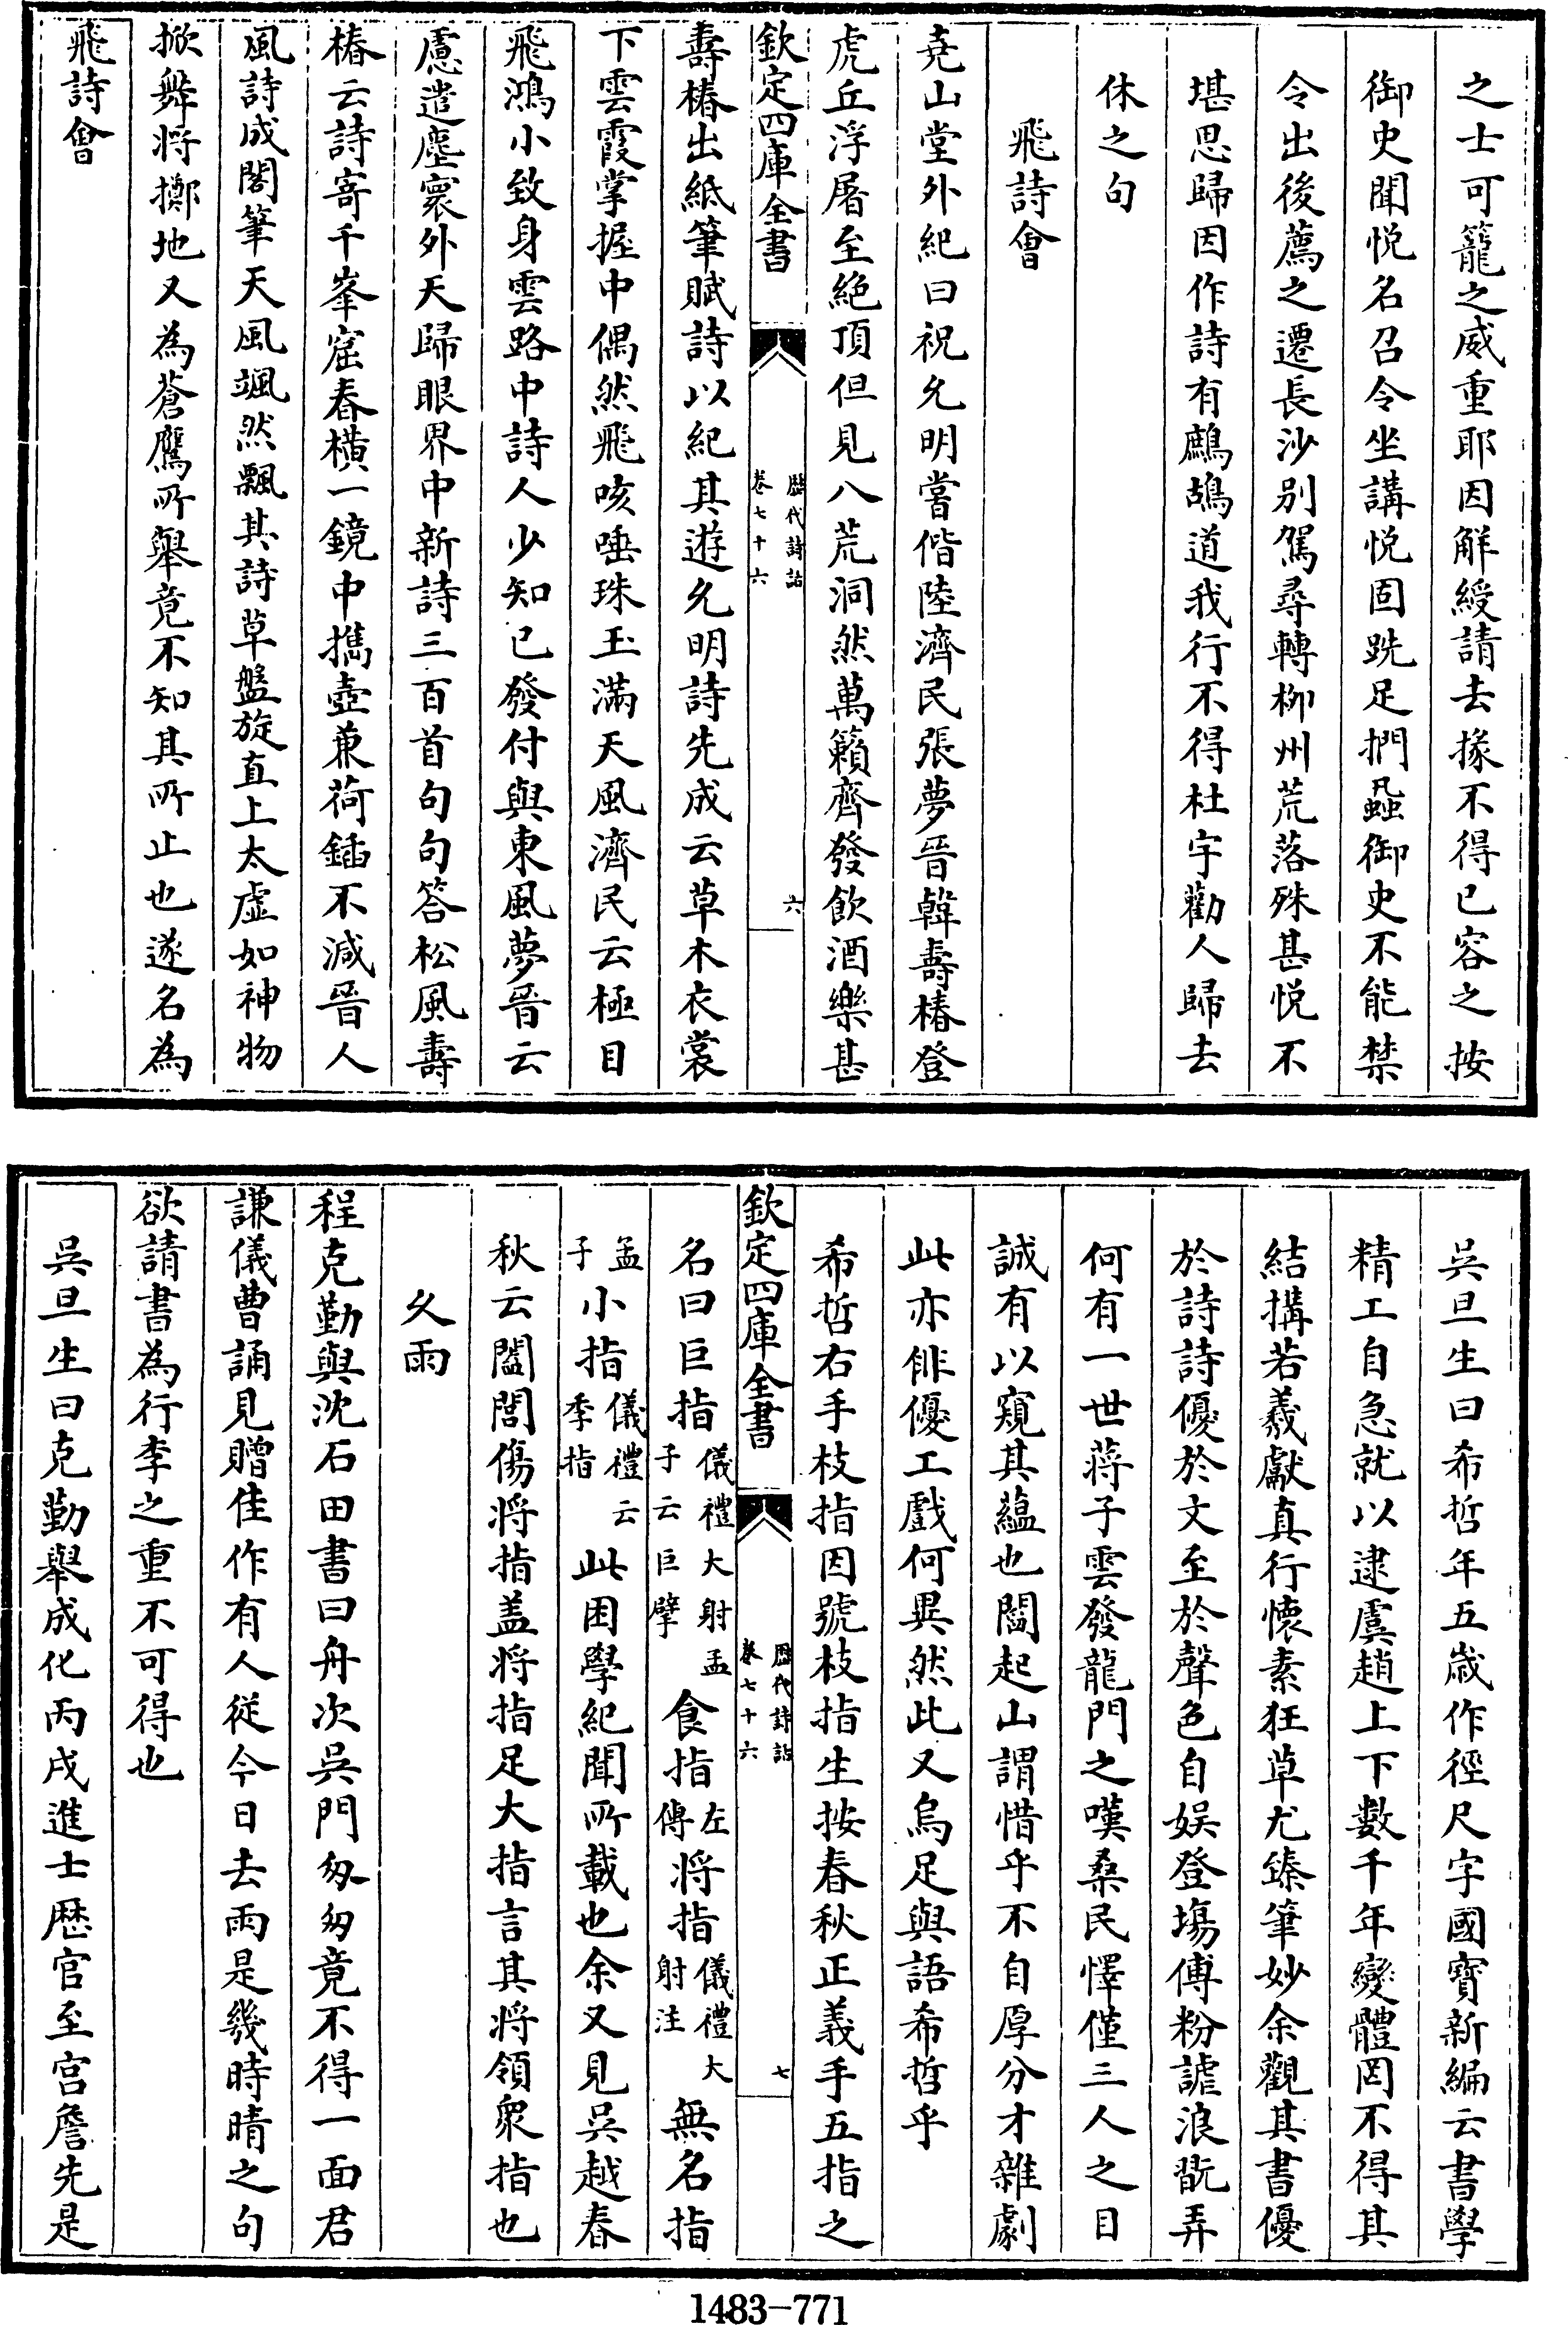 之士可籠之威重耶因解綬請去掾不得已容之按
御史聞悦名召令坐講悦固跣足捫蝨御史不能禁
令出後薦之遷長沙别駕尋轉柳州荒落殊甚悦不
堪思歸因作詩有鷓鴣道我行不得杜宇勸人歸去
休之句
飛詩會
堯山堂外紀曰祝允明嘗偕陸濟民張夢晉韓壽椿登
虎丘浮屠至絶頂但見八荒洞然萬籟齊發飲酒樂甚
欽定四庫全書
歷代詩話
卷七十六
六
壽椿出紙筆賦詩以紀其遊允明詩先成云草木衣裳
下雲霞掌握中偶然飛咳唾珠玉滿天風濟民云極目
飛鴻小致身雲路中詩人少知已發付與東風夢晉云
慮遣塵寰外天歸眼界中新詩三百首句句答松風壽
椿云詩寄千峯窟春横一鏡中攜壺兼荷鍤不減晉人
風詩成閣筆天風颯然飄其詩草盤旋直上太虛如神物
掀舞將擲地又為蒼鷹所舉竟不知其所止也遂名為
飛詩會
吳旦生曰希哲年五歲作徑尺字國寶新編云書學
精工自急就以逮虞趙上下數千年變體罔不得其
結搆若羲獻真行懷素狂草尤臻筆妙余觀其書優
於詩詩優於文至於聲色自娱登場傅粉謔浪翫弄
何有一世蔣子雲發龍門之嘆桑民懌僅三人之目
誠有以窺其蘊也閻起山謂惜乎不自厚分才雜劇
此亦俳優工戲何異然此又烏足與語希哲乎
希哲右手枝指因號枝指生按春秋正義手五指之
欽定四庫全書
歷代詩話
卷七十六
七
名曰巨指儀禮大射孟子云巨擘食指左傳將指儀禮大射注無名指
孟子小指儀禮云季指此困學紀聞所載也余又見吳越春
秋云闔閭傷將指盖將指足大指言其將領衆指也
久雨
程克勤與沈石田書曰舟次吳門匆匆竟不得一面君
謙儀曹誦見贈佳作有人従今日去雨是幾時晴之句
欲請書為行李之重不可得也
吳旦生曰克勤舉成化丙戌進士歴官至宫詹先是
1483-771